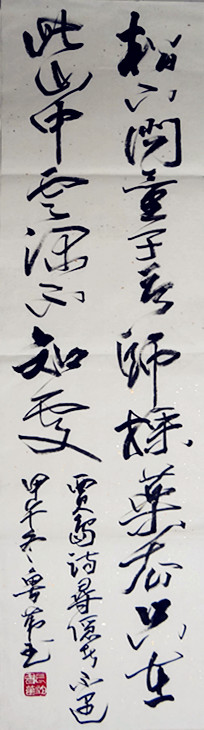 松下問童子言師採藥去只在
此山中雲深不知處
賈島詩尋隱者不遇
甲午冬魯